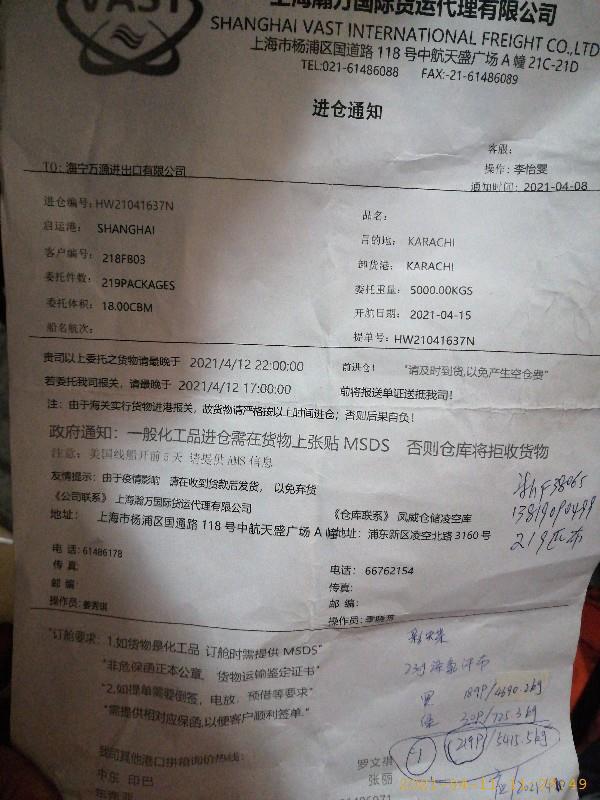 VAST
上海瀚万国际货运代理有限公司
SHANGHAI VAST INTERNATIONAL FREIGHT CO.,LTD
上海市杨浦区国道路 118 号中航天盛广场 A 幢 21C-21D
TEL:021-61486088 FAX:-21-61486089
进仓通知
客服:
TO: 海宁万源进出口有限公司 操作: 李怡雯
通知时间: 2021-04-08
进仓编号: HW21041637N 品名:
启运港: SHANGHAI 目的地: KARACHI
客户编号: 218FB03 卸货港: KARACHI
委托件数: 219PACKAGES 委托重量: 5000.00KGS
委托体积: 18.00CBM 开航日期: 2021-04-15
船名航次: 提单号: HW21041637N
贵司以上委托之货物请最晚于 2021/4/12 22:00:00 前进仓! "请及时到货,以免产生空仓费"
若委托我司报关, 请最晚于 2021/4/12 17:00:00 前将报送单证送抵我司!
注: 由于海关实行货物进港报关, 故货物请严格按以上时间进仓; 否则后果自负!
政府通知: 一般化工品进仓需在货物上张贴 MSDS 否则仓库将拒收货物
注意: 美国线船开前 5 天 请提供 AMS 信息
友情提示: 由于疫情影响 请在收到贷款后发货, 以免弃货
浙F38065
《公司联系》 上海瀚万国际货运代理有限公司 《仓库联系》 凤威仓储凌空库
219匹布
地址: 上海市杨浦区国道路 118 号中航天盛广场 A 幢 地址: 浦东新区凌空北路 3160 号
电 话: 61486178 电话: 66762154
传 真: 传真:
邮 编: 邮 编:
操作员: 操作员:
"订舱要求: 1.如货物是化工品 订舱时需提供 MSDS"
"非危保函正本公章, 货物运输鉴定证书"
"2.如提单需要倒签, 电放, 预借等要求"
189P/4690.2kg
"需提供相对应保函,以便客户顺利签单."
30P/725.3kg
219P/5415.5kg
我司其他港口拼箱询价热线: 罗文祺
中东 印巴 张丽